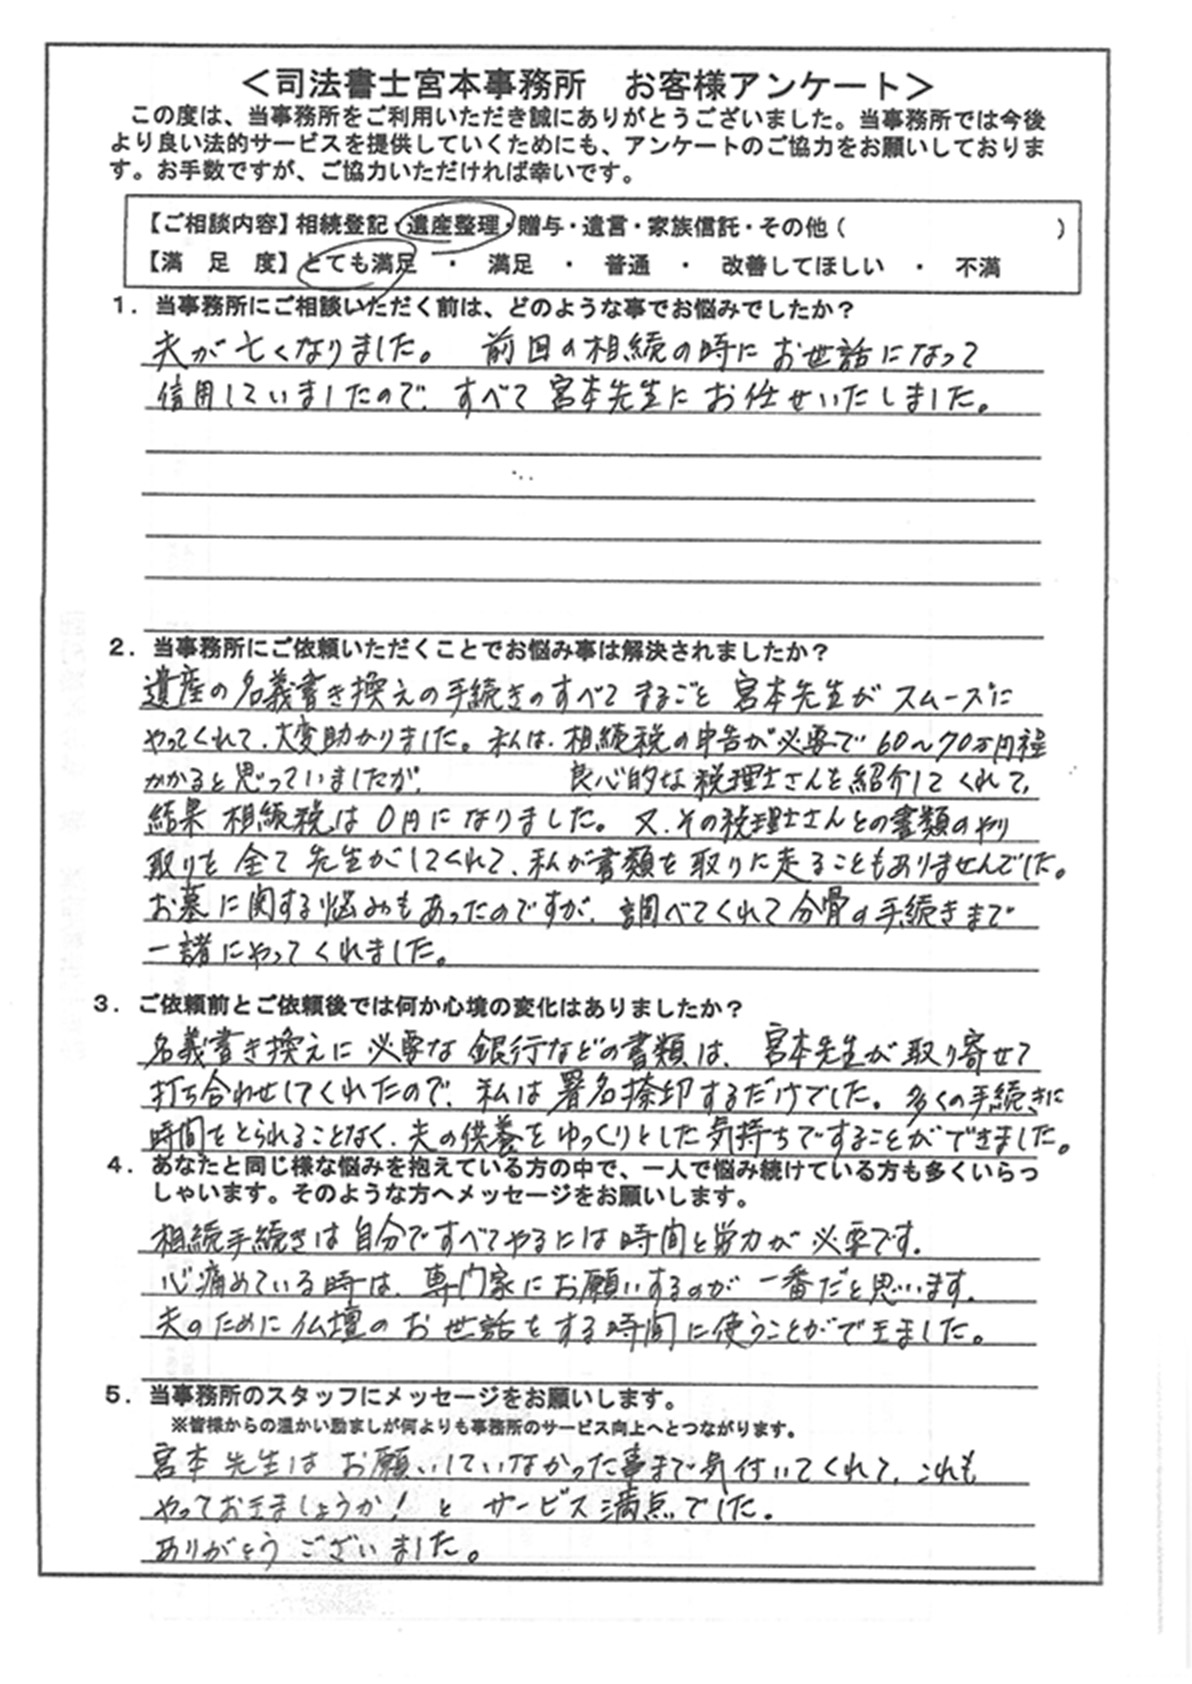 ＜司法書士宮本事務所　お客様アンケート＞
この度は、当事務所をご利用いただき誠にありがとうございました。当事務所では今後
より良い法的サービスを提供していくためにも、アンケートのご協力をお願いしておりま
す。お手数ですが、ご協力いただければ幸いです。
【ご相談内容】相続登記・遺産整理・贈与・遺言・家族信託・その他（　　　　　　　　）
【満　足　度】とても満足　・　満足　・　普通　・　改善してほしい　・　不満
１．当事務所にご相談いただく前は、どのような事でお悩みでしたか？
夫が亡くなりました。　前回の相続の時にお世話になって
信用していましたので、すべて宮本先生にお任せいたしました。
２．当事務所にご依頼いただくことでお悩み事は解決されましたか？
遺産の名義書き換えの手続きのすべてまるごと宮本先生がスムーズに
やってくれて、大変助かりました。私は、相続税の申告が必要で60〜70万円程
かかると思っていましたが、　　　　良心的な税理士さんを紹介してくれて、
結果 相続税は0円になりました。又、その税理士さんとの書類のやり
取りを全て先生がしてくれて、私が書類を取りに走ることもありませんでした。
お墓に関する悩みもあったのですが、調べてくれて分骨の手続きまで
一諸にやってくれました。
３．ご依頼前とご依頼後では何か心境の変化はありましたか？
名義書き換えに必要な銀行などの書類は、宮本先生が取り寄せて
打ち合わせしてくれたので、私は署名捺印するだけでした。多くの手続きに
時間をとられることなく、夫の供養をゆっくりとした気持ちですることができました。
４．あなたと同じ様な悩みを抱えている方の中で、一人で悩み続けている方も多くいらっ
しゃいます。そのような方へメッセージをお願いします。
相続手続きは自分ですべてやるには時間と労力が必要です。
心痛めている時は、専門家にお願いするのが一番だと思います。
夫のために仏壇のお世話をする時間に使うことができました。
５．当事務所のスタッフにメッセージをお願いします。
※皆様からの温かい励ましが何よりも事務所のサービス向上へとつながります。
宮本先生はお願いしていなかった事まで気付いてくれて、これも
やっておきましょうか！とサービス満点でした。
ありがとうございました。